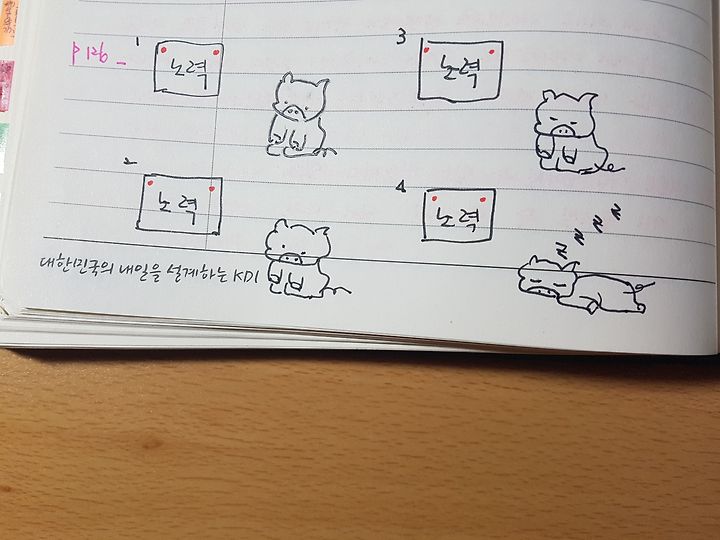 P 126 -
1
노력
2
노력
3
노력
4
노력
z z z z
대한민국의 내일을 설계하는 KDI